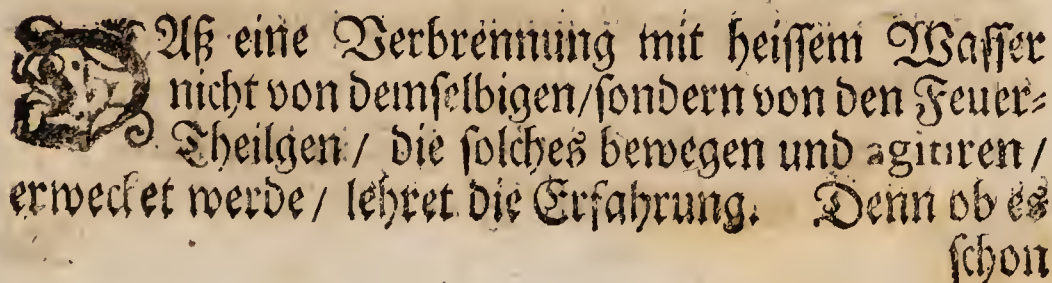 DAß eine Verbrennung mit heissem Wasser
nicht von demselbigen/sondern von den Feuer-
Theilgen/ die solches bewegen und agitiren/
erwecket werde/ lehret die Erfahrung. Denn ob es
schon